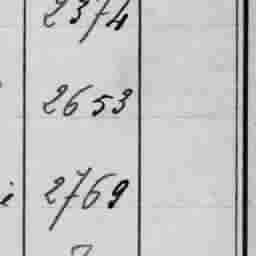 2374
2653
i 2769